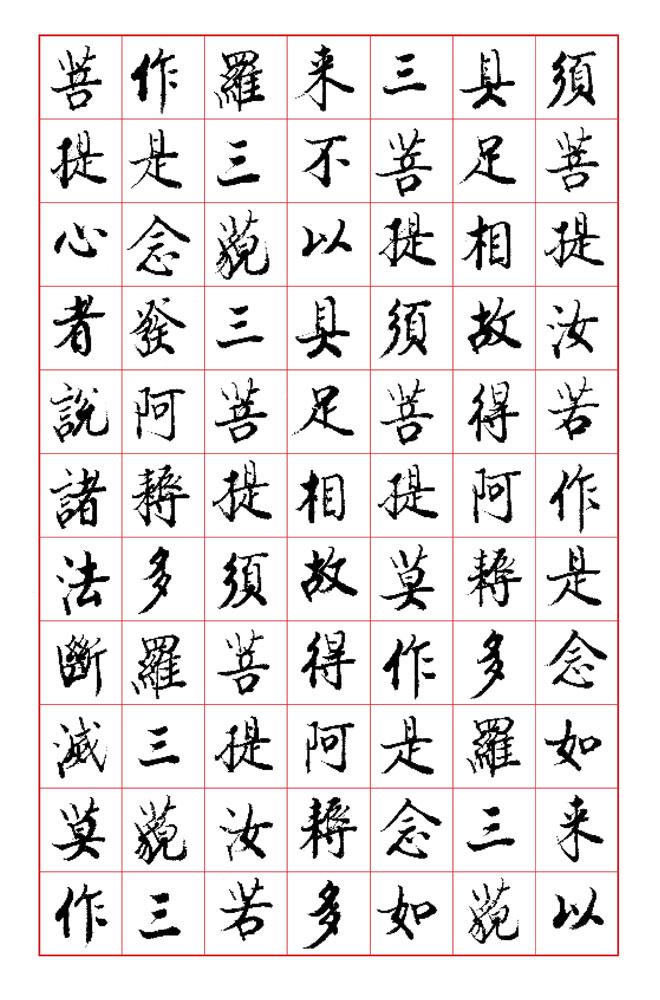 須菩提汝若作是念如来以
具足相故得阿耨多羅三藐
三菩提須菩提莫作是念如
来不以具足相故得阿耨多
羅三藐三菩提須菩提汝若
作是念發阿耨多羅三藐三
菩提心者說諸法斷滅莫作